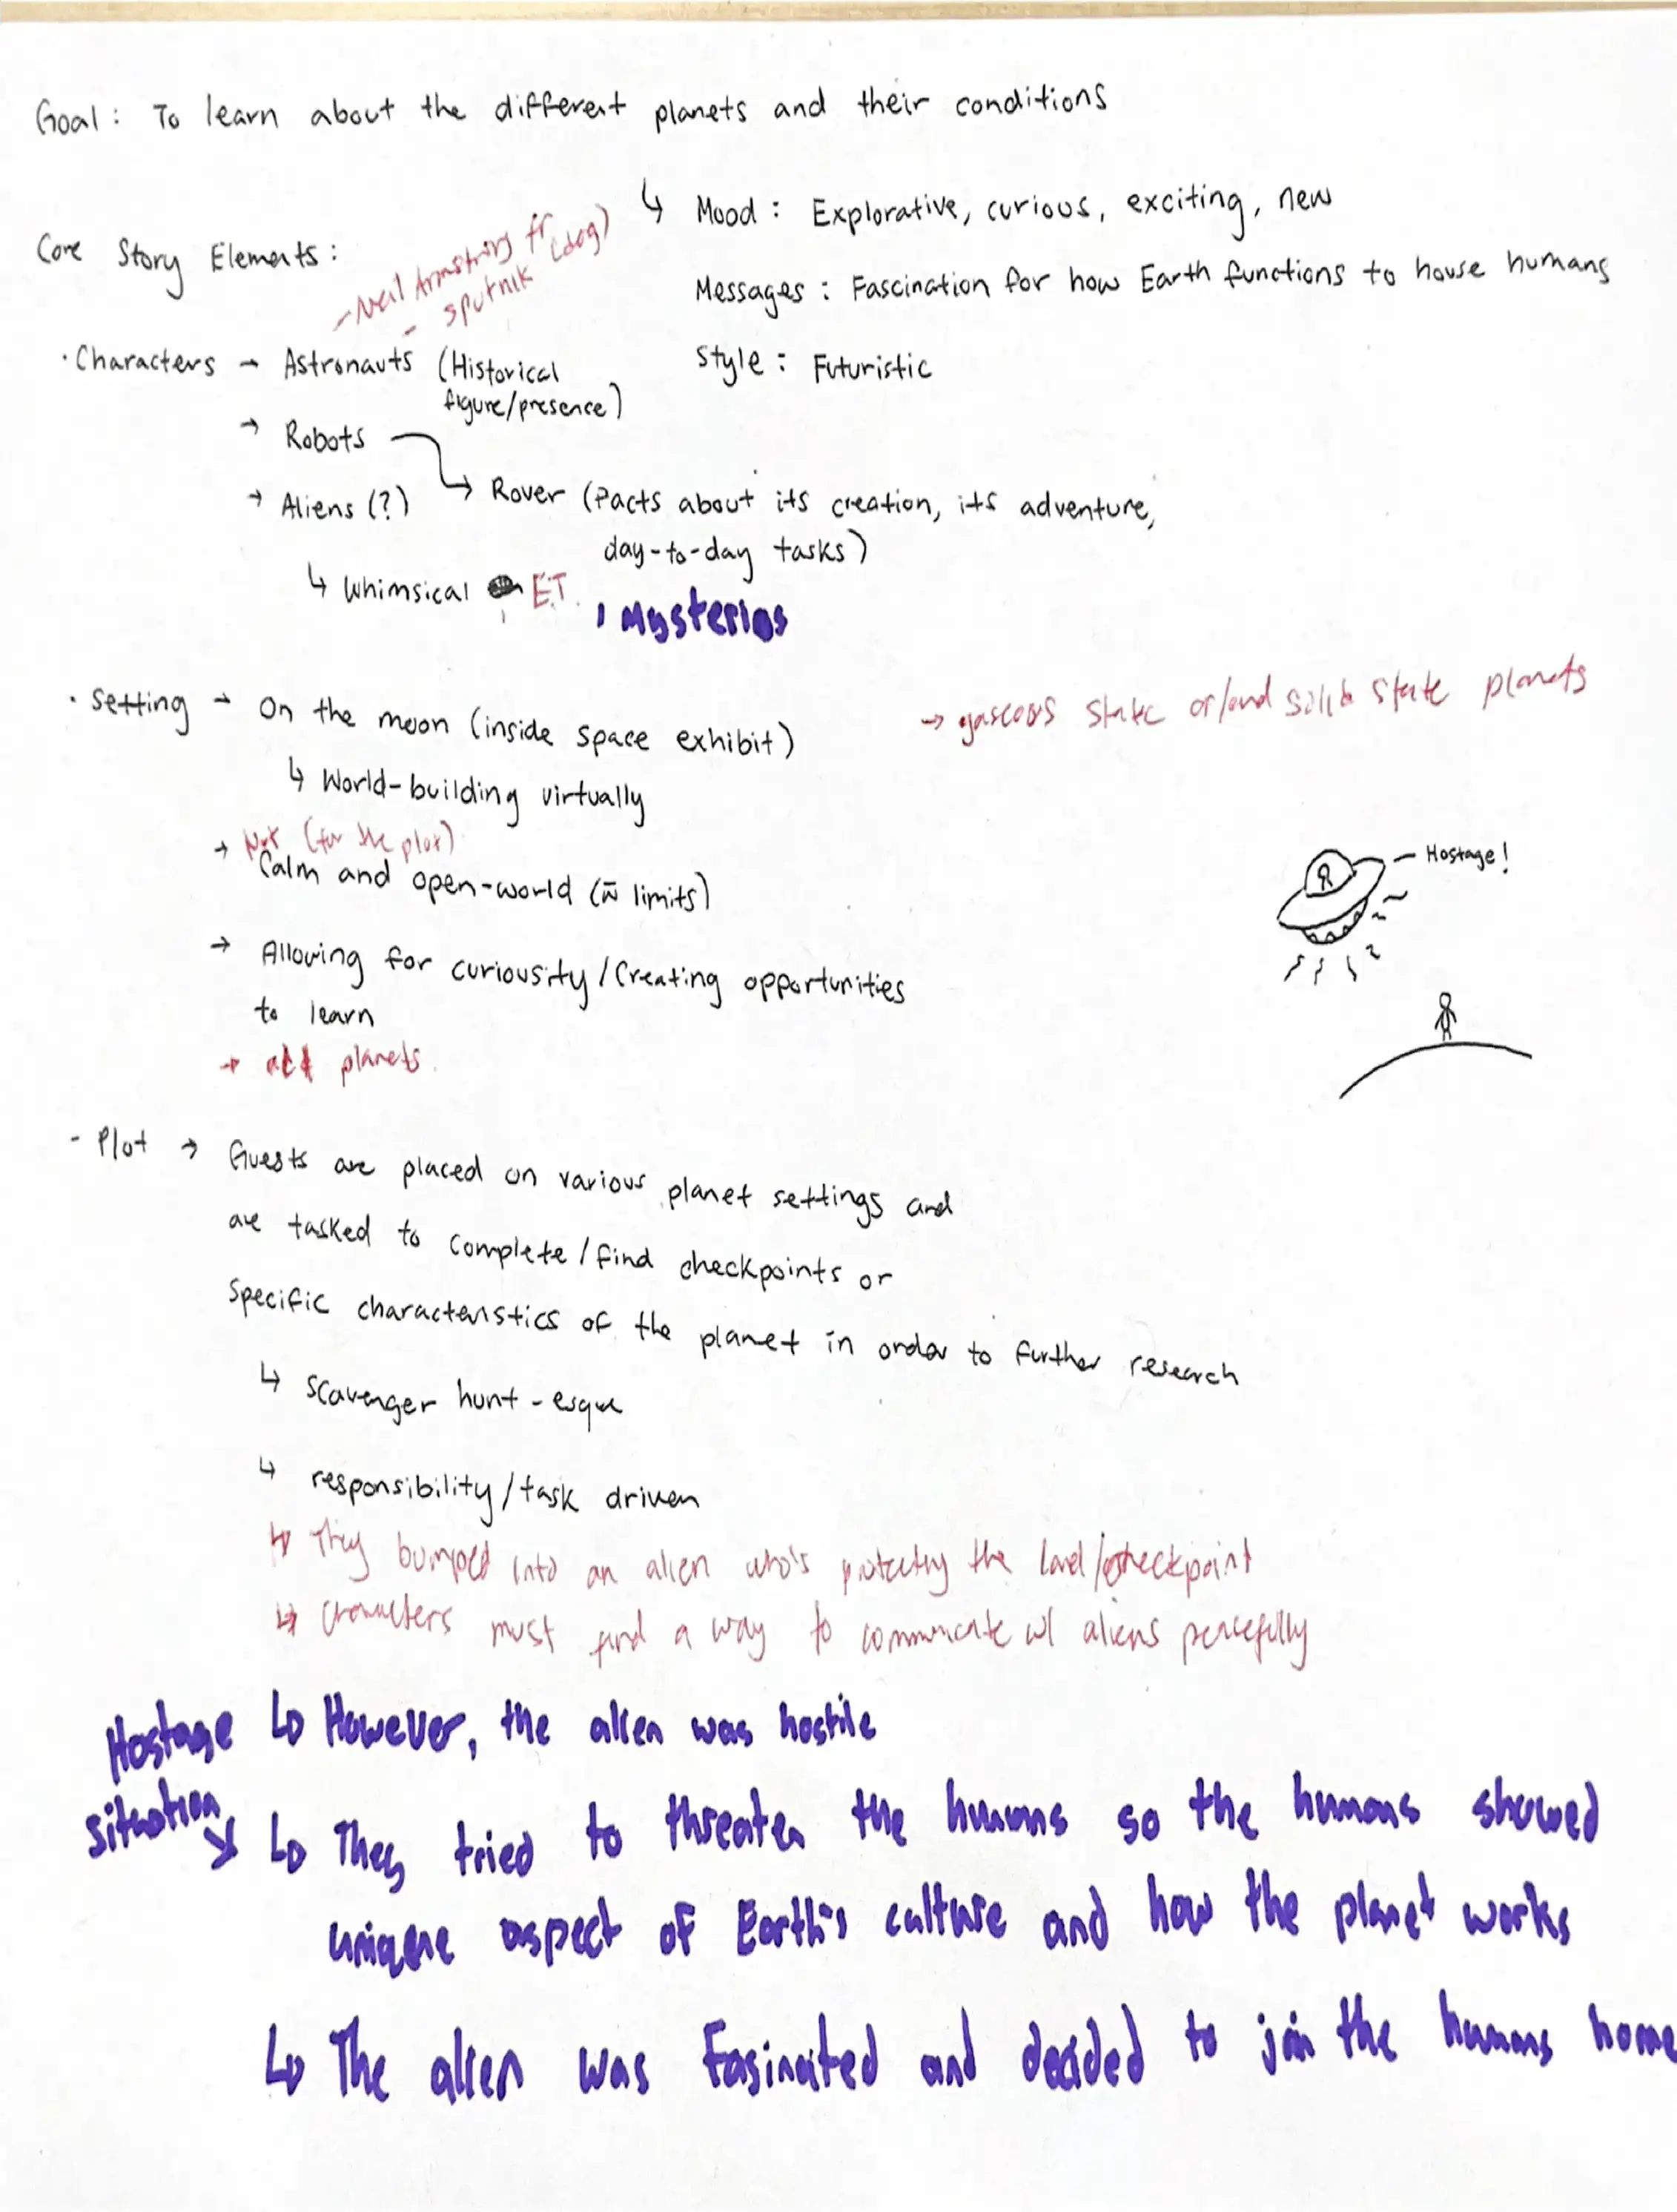 Goal: To learn about the different planets and their conditions
↳ Mood: Explorative, curious, exciting, new
Messages: Fascination for how Earth functions to house humans
Style: Futuristic
Core Story Elements:
- Neil Armstrong fr
- sputnik (dog)
· Characters → Astronauts (Historical
figure/presence)
→ Robots
↳ Rover (Facts about its creation, its adventure,
day-to-day tasks)
→ Aliens (?)
↳ Whimsical E.T.
, Mysterios
· Setting → On the moon (inside space exhibit)
→ gaseous state or/and solid state planets
↳ World-building virtually
Not (for the plot)
→ Calm and open-world (w̄ limits)
→ Allowing for curiousity/Creating opportunities
to learn
→ add planets.
- Hostage!
- Plot → Guests are placed on various planet settings and
are tasked to complete/find checkpoints or
specific characteristics of the planet in order to further research
↳ scavenger hunt-esque
↳ responsibility/task driven
↳ They bumped into an alien who's protecting the land/checkpoint
↳ characters must find a way to communicate w/ aliens peacefully
Hostage
situation
↳ However, the alien was hostile
↳ They tried to threaten the humans so the humans showed
unique aspect of Earth's culture and how the planet works
↳ The alien was fasinated and decided to join the humans home